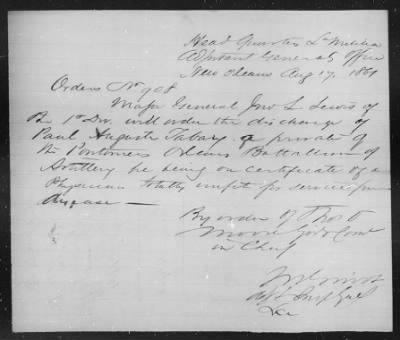 Head Quarters La Militia
Adjutant Generals Office
New Orleans Aug 17. 1861
Orders No 908
Major General Jno L. Lewis of
the 1st Div. will order the discharge of
Paul Auguste Tabary a private of
the Orleans Battallion of
Artillery he being on certificate of a
Physician totally unfit for service from
disease —
By order of Thos O
Moore Gov & Com
in Chief
Adjt & Insp Genl
La